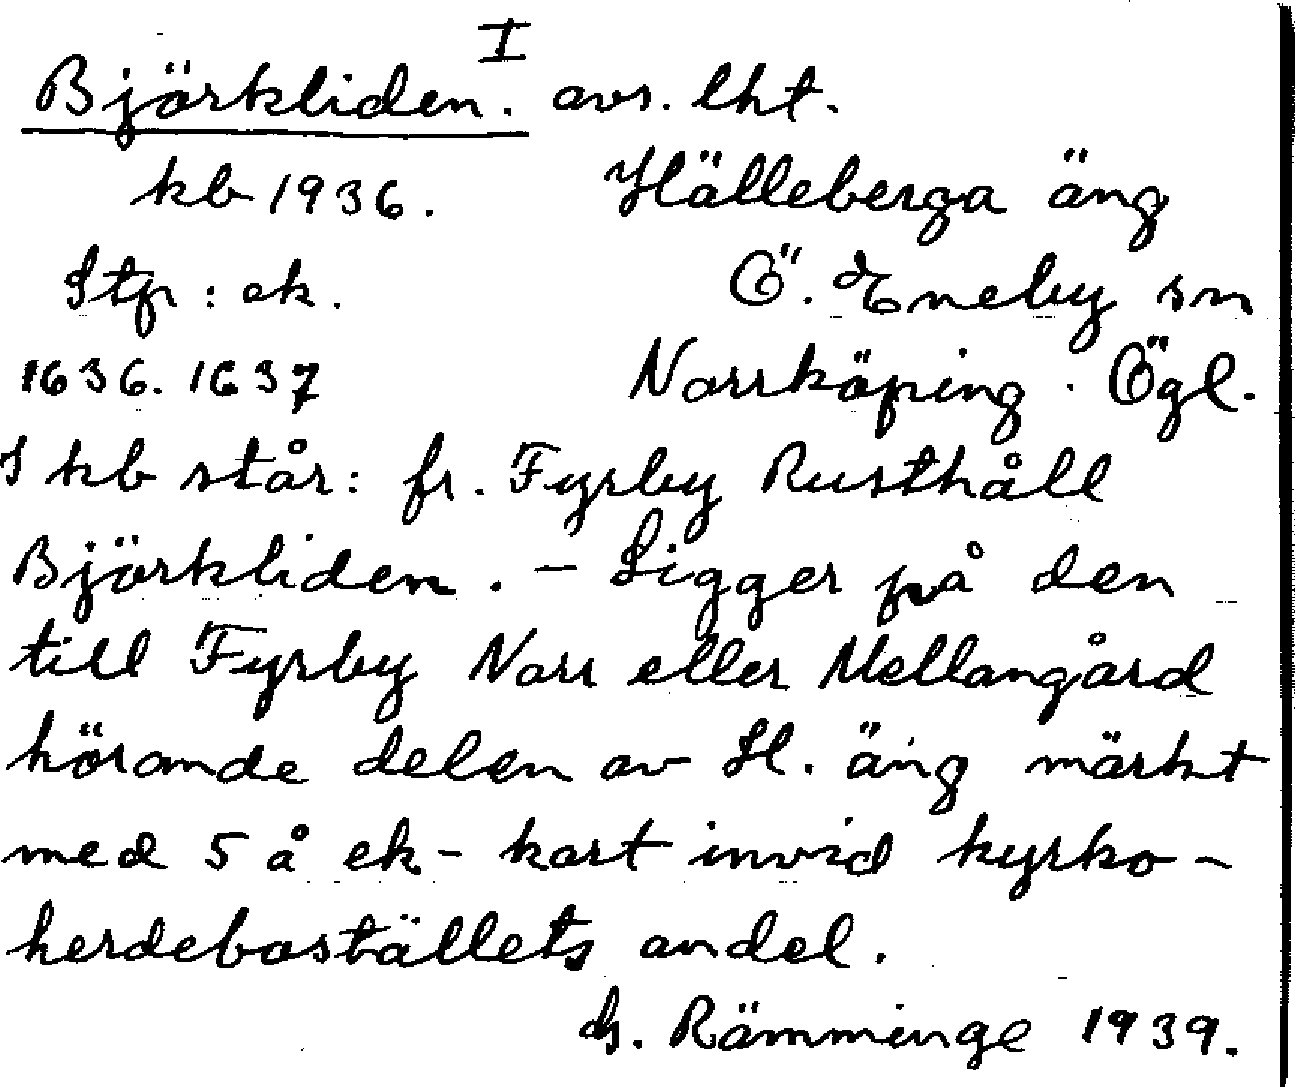 I
Björkliden. avs. lht.
kb 1936. Hälleberga äng
Stfr: ek. Ö. Eneby sn
1636. 1637 Norrköping. Ögl.
I kb står: fr. Fyrby Rusthåll
Björkliden. - Ligger på den
till Fyrby Norr eller Mellangård
hörande delen av H. äng märkt
med 5 å ek-kart invid kyrko-
herdeboställets andel.
G. Rämminge 1939.